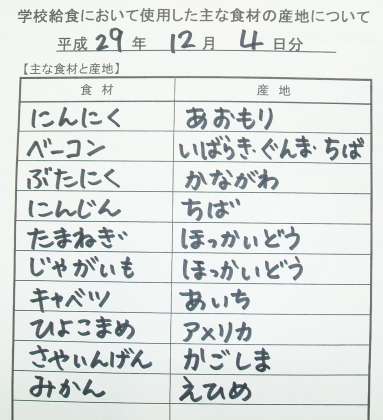 学校給食において使用した主な食材の産地について
平成 29 年 12 月 4 日分
【主な食材と産地】
食材 産地
にんにく あおもり
ベーコン いばらき・ぐんま・ちば
ぶたにく かながわ
にんじん ちば
たまねぎ ほっかいどう
じゃがいも ほっかいどう
キャベツ あいち
ひよこまめ アメリカ
さやいんげん かごしま
みかん えひめ